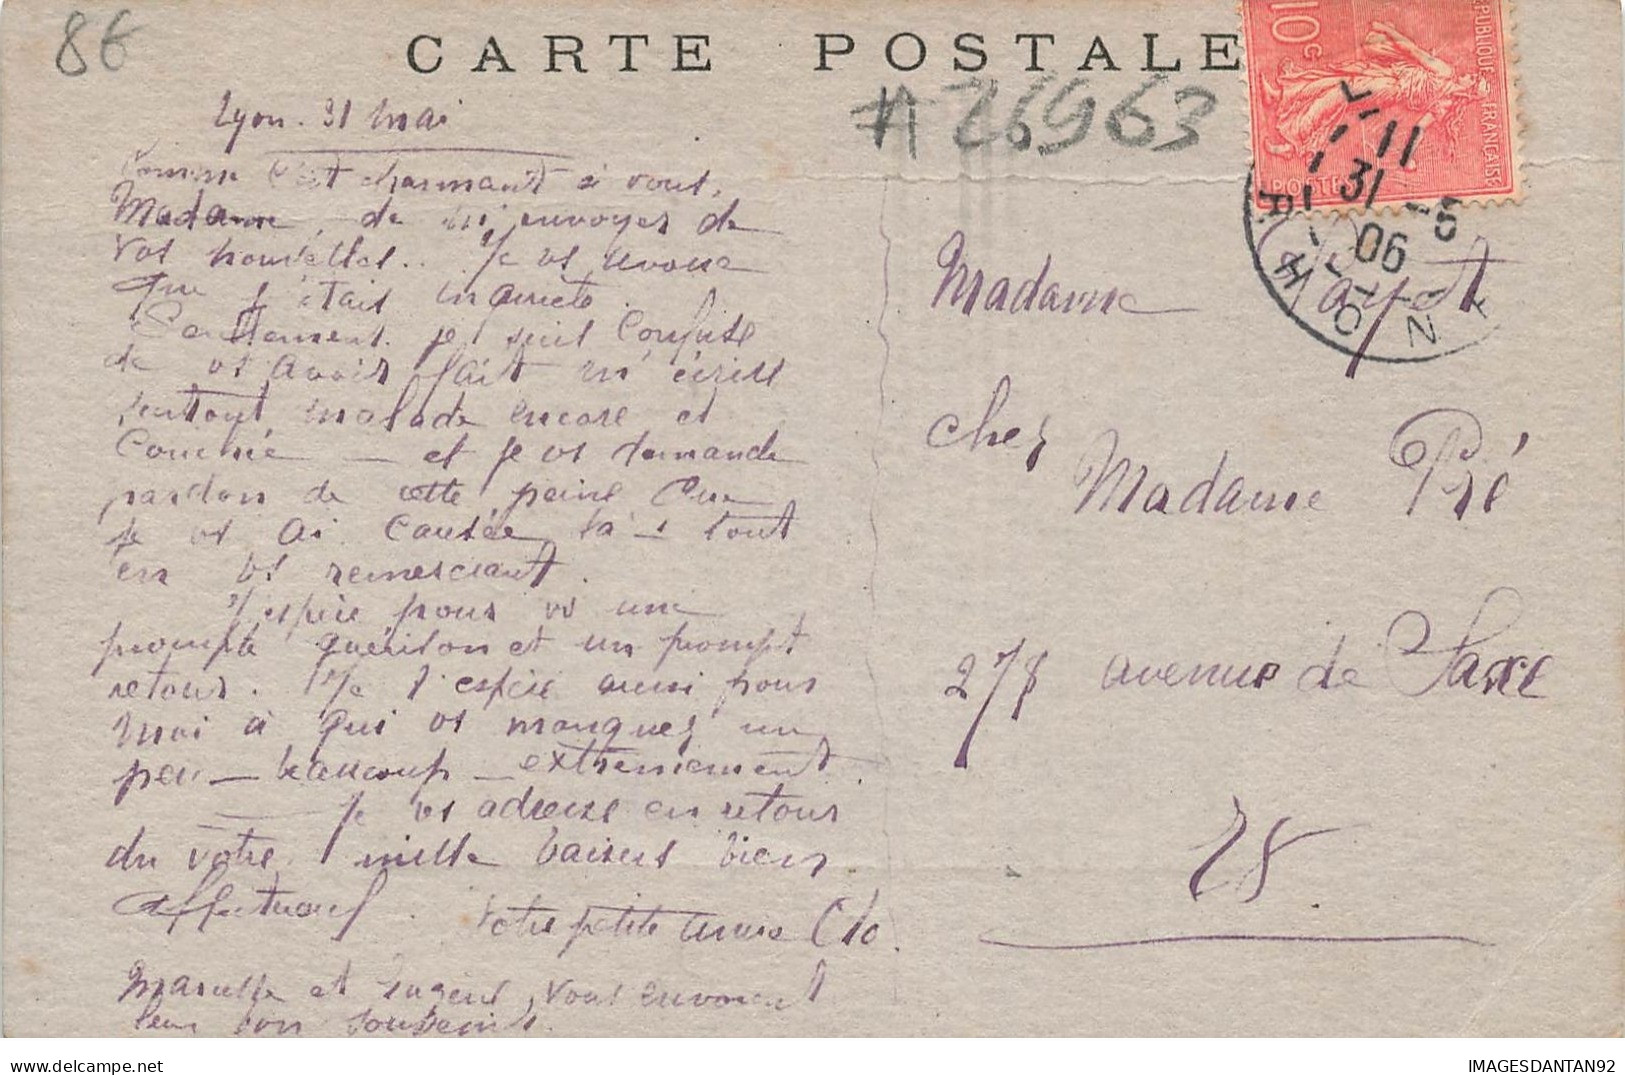 8€
CARTE POSTALE
#26963
10 C
REPUBLIQUE FRANÇAISE
POSTES
11
31
06
RHONE
Lyon. 31 Mai
Comme c'est charmant à vous,
Madame, de m'envoyer de
vos nouvelles.. Je vs avoue
que j'étais inquiète.
Seulement je suis confuse
de vs avoir fait m'écrire
surtout malade encore et
couchée — et je vs demande
pardon de cette peine que
je vs ai causée là — tout
en vs remerciant.
J'espère pour vs une
prompte guérison et un prompt
retour. Je l'espère aussi pour
moi à qui vs manquez un
peu — beaucoup — extrêmement.
Je vs adresse en retour
du vôtre, mille baisers bien
affectueux. Votre petite amie Clo.
Marcelle et Eugène vous envoient
leur bon souvenir.
Madame Payet
chez
Madame Pré
278 avenue de Saxe
28.
IMAGESDANTAN92